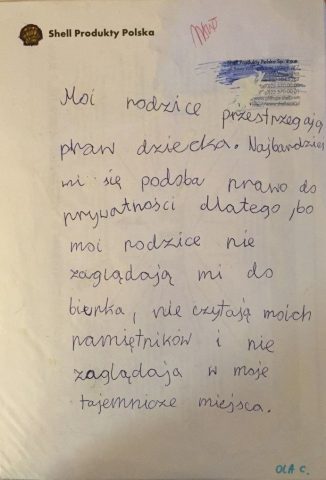 Shell Produkty Polska
Shell Produkty Polska Sp. z o.o.
Moi rodzice przestrzegają
praw dziecka. Najbardziej
mi się podoba prawo do
prywatności dlatego, bo
moi rodzice nie
zaglądają mi do
biurka, nie czytają moich
pamiętników i nie
zaglądają w moje
tajemnicze miejsca.
OLA C.